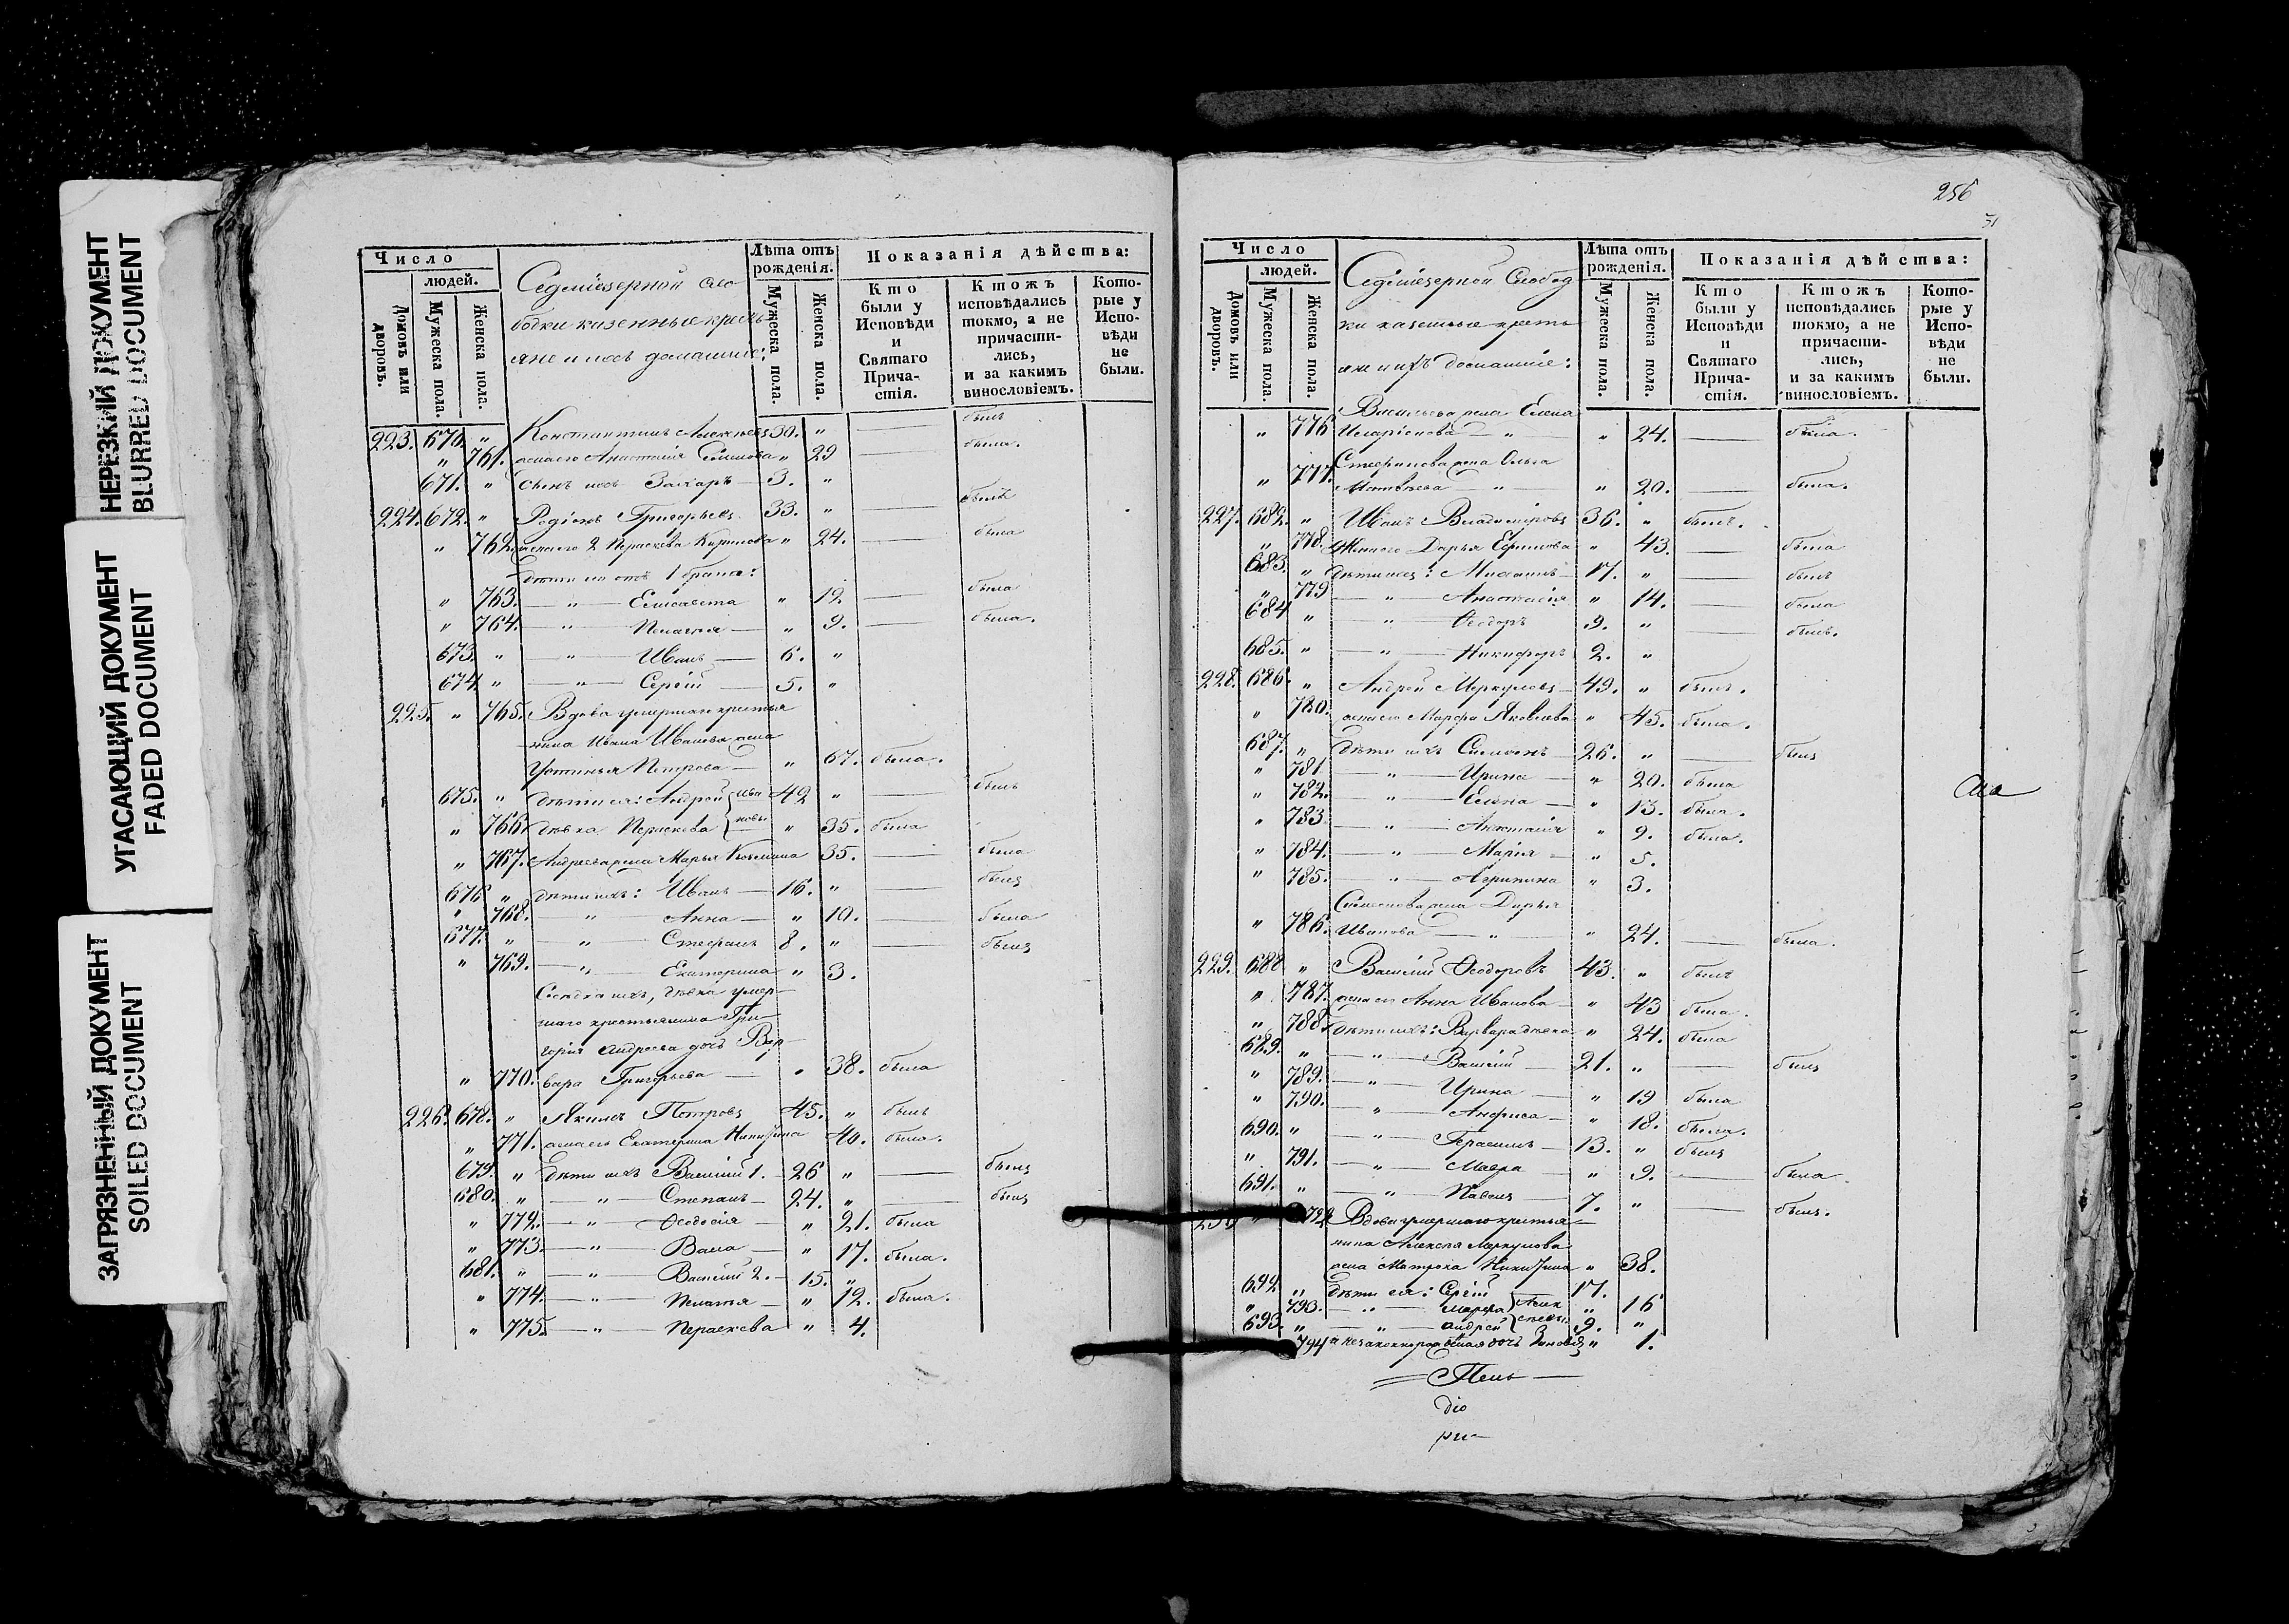 НЕРЕЗКИЙ ДОКУМЕНТ
BLURRED DOCUMENT
УГАСАЮЩИЙ ДОКУМЕНТ
FADED DOCUMENT
ЗАГРЯЗНЕННЫЙ ДОКУМЕНТ
SOILED DOCUMENT
Число
людей.
Домовъ или дворовъ.
Мужеска пола.
Женска пола.
Седміезерной сло
бодки казенные кресть
яне и ихъ домашніе:
Лѣта отъ рожденія.
Мужеска пола.
Женска пола.
Показанія дѣйства:
Кто были у Исповѣди и Святаго Причастія.
Ктожъ исповѣдались токмо, а не причастились, и за какимъ винословіемъ.
Которые у Исповѣди не были.
223. 670. " Константинъ Алексѣевъ 30. " — былъ
" 761. жена его Анастасія " 29 — была.
671. " Сынъ ихъ Захаръ — 3. "
224. 672. " Родіонъ Григорьевъ 33. " — былъ
" 762. жена его 2 Параскева Кирилова " 24. — была
дѣти его отъ 1 брака:
" 763. — " — Елисавета " 12 — была
" 764. — " — Пелагея — " 9. — была.
673. " — " — Иванъ — 6. "
674. " — " — Сергій — 5. "
225. " 765. Вдова умершаго крестья
нина Ивана Иванова жена
Устинья Петрова — " 67. была.
675. " дѣти ея: Андрей { Ива 42 " — былъ
" 766. дѣвка Параскева { новы " 35. была
" 767. Андреева жена Марья Козмина 35. — была
676 " дѣти ихъ: Иванъ — 16. " — былъ
" 768. " Анна — " 10. — была
677. " — " Стефанъ 8. " — былъ
" 769. — " Екатерина " 3.
ихъ, дѣвка умер
шаго крестьянина Гри
горія Андреева дочь Вар
" 770. вара Григорьева — " 38. была
226. 678. " Якимъ Петровъ 45. " былъ
" 771. жена его Екатерина Никитина 40. была.
679. " дѣти ихъ Василій 1. — 26 " — былъ
680. " — " — Степанъ — 24. " — былъ
" 772. — " — Ѳеодосія — " 21. была
" 773. — " — Васса — " 17. была.
681. " — " — Василій 2. — 15. "
" 774. — " — Пелагея — " 12. была.
" 775. — " — Параскева " 4.
256
Число
людей.
Домовъ или дворовъ.
Мужеска пола.
Женска пола.
Седміезерной Слобод
ки казенные кресть
яне и ихъ домашніе:
Лѣта отъ рожденія.
Мужеска пола.
Женска пола.
Показанія дѣйства:
Кто были у Исповѣди и Святаго Причастія.
Ктожъ исповѣдались токмо, а не причастились, и за какимъ винословіемъ.
Которые у Исповѣди не были.
Васильева жена Елена
" 776 Иларіонова — " — " 24. — была.
Стефанова жена Ольга
" 777. Матвѣева — " — " 20. — была.
227. 682. " Иванъ Владиміровъ 36. " былъ.
" 778. Жена его Дарья Ефимова " 43. — была
683. " дѣти ихъ: — 17. " — былъ
" 779 — " — Анастасія " 14. — была
684 " " — Ѳеодоръ 9. " — былъ.
685. " — " — Никифоръ 2. "
228. 686. " Андрей Меркуловъ — 49. " былъ.
" 780. жена его Марфа Яковлева " 45. была.
687. " дѣти ихъ Симеонъ — 26. " — былъ
" 781 — " — Ирина — " 20. была
" 782. — " — Елена — " 13. была.
" 783 — " — Анастасія " 9. была.
" 784. — " — Марія — " 5.
" 785. — " — Агрипина " 3.
Симеонова жена Дарья
" 786. Иванова — " — " 24. — была.
229. 688 " Василій Ѳеодоровъ 43. " былъ
" 787. жена его Анна Иванова — " 43 была.
" 788. дѣти ихъ: Варвара дѣвка " 24. была
689. " — " — Василій — 21. " — былъ
" 789. — " — Ирина — " 19 была
" 790. — " — Анфиса — " 18. была.
690. " " — Герасимъ — 13. " былъ
" 791. — " — Мавра — " 9. — была.
691. " — " — Павелъ — 7. " — былъ.
792 Вдова умершаго крестья
нина Алексѣя Меркулова
жена Матрона Никитина " 38.
692 " дѣти ея: Сергій 17.
" 793. — " — Марфа } Алек " 16
693. " — " — Андрей } сѣевы. 9. "
794 и незаконнорожденная дочь Зиновія " 1.